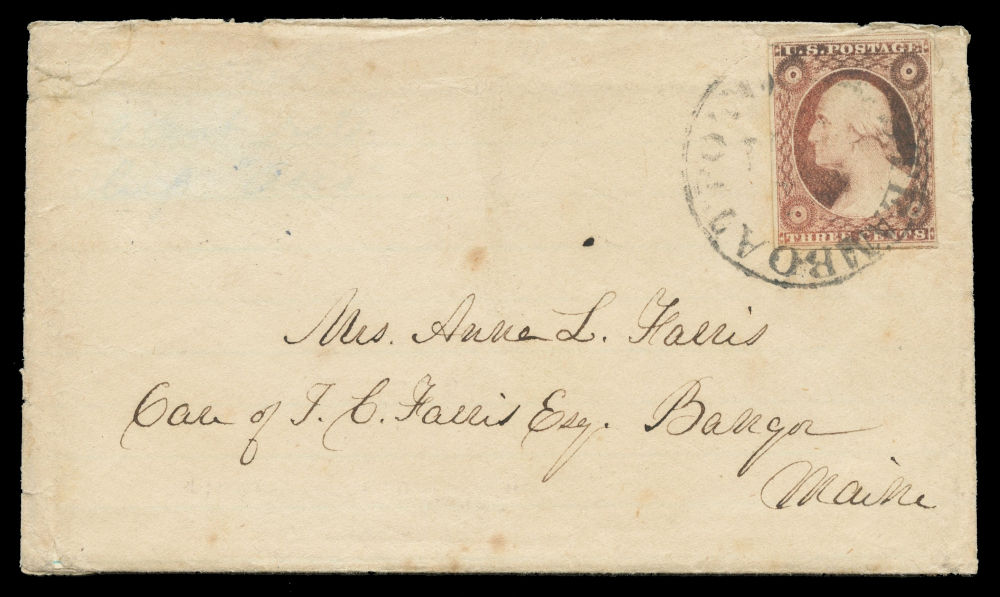 U.S. POSTAGE
THREE CENTS
STEAMBOAT
Mrs. Anne L. Farris
Care of F. C. Farris Esq. Bangor
Maine